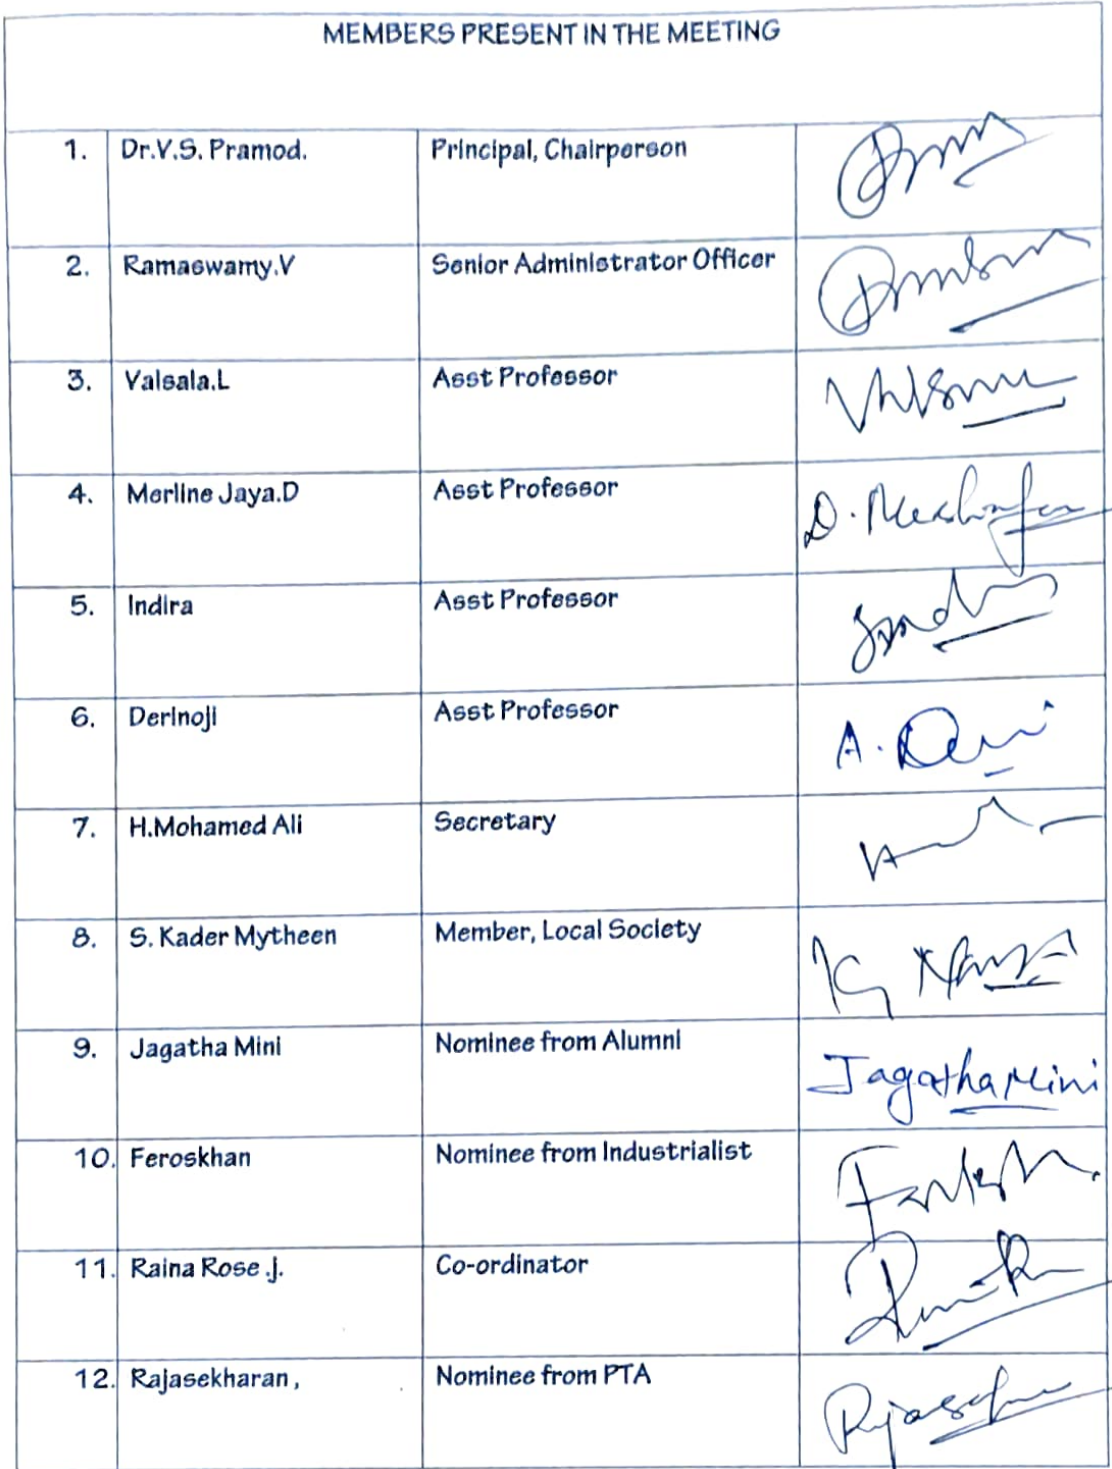 MEMBERS PRESENT IN THE MEETING
1. Dr.V.S. Pramod. Principal, Chairperson
2. Ramaswamy.V Senior Administrator Officer
3. Valsala.L Asst Professor
4. Merline Jaya.D Asst Professor
5. Indira Asst Professor
6. Derinoji Asst Professor
A.
7. H.Mohamed Ali Secretary
8. S. Kader Mytheen Member, Local Society
9. Jagatha Mini Nominee from Alumni
Jagatha Mini
10. Feroskhan Nominee from Industrialist
11. Raina Rose .j. Co-ordinator
12. Rajasekharan, Nominee from PTA